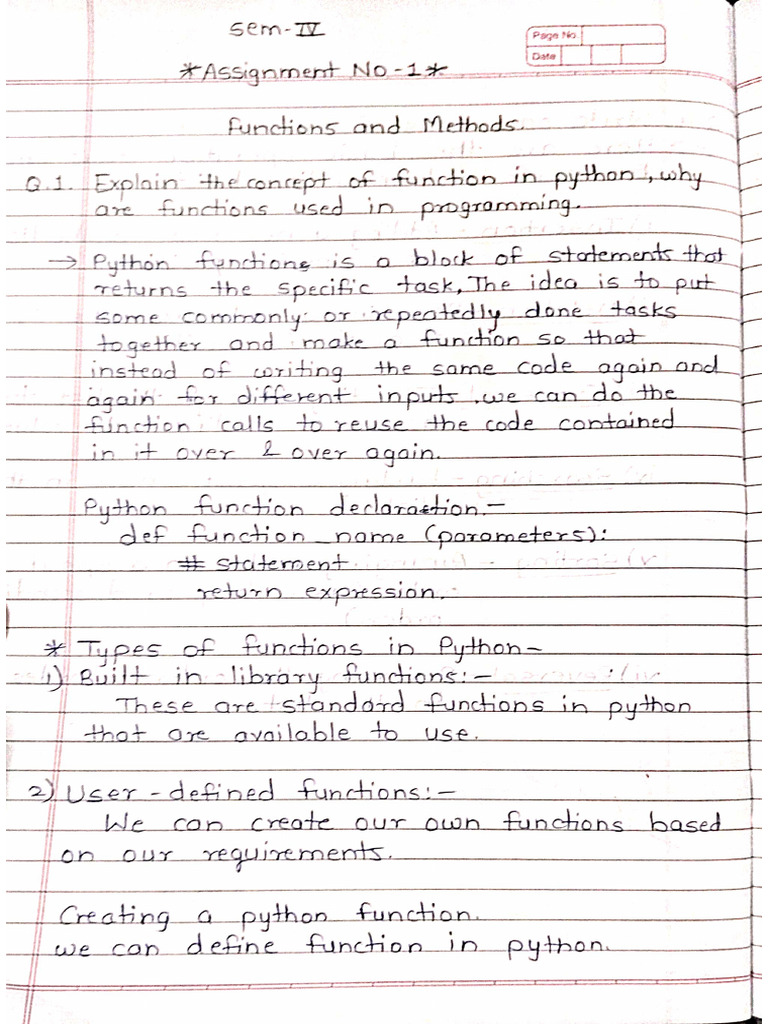 Sem-IV
Page No.
Date
*Assignment No-1*
Functions and Methods.
Q.1. Explain the concept of function in python, why
are functions used in programming.
→ Python functions is a block of statements that
returns the specific task, The idea is to put
some commonly or repeatedly done tasks
together and make a function so that
instead of writing the same code again and
again for different inputs, we can do the
function calls to reuse the code contained
in it over & over again.
Python function declaraction:-
def function_name (parameters):
# statement
return expression.
* Types of functions in Python-
1) Built in library functions:-
These are standard functions in python
that are available to use.
2) User-defined functions:-
We can create our own functions based
on our requirements.
Creating a python function.
we can define function in python.